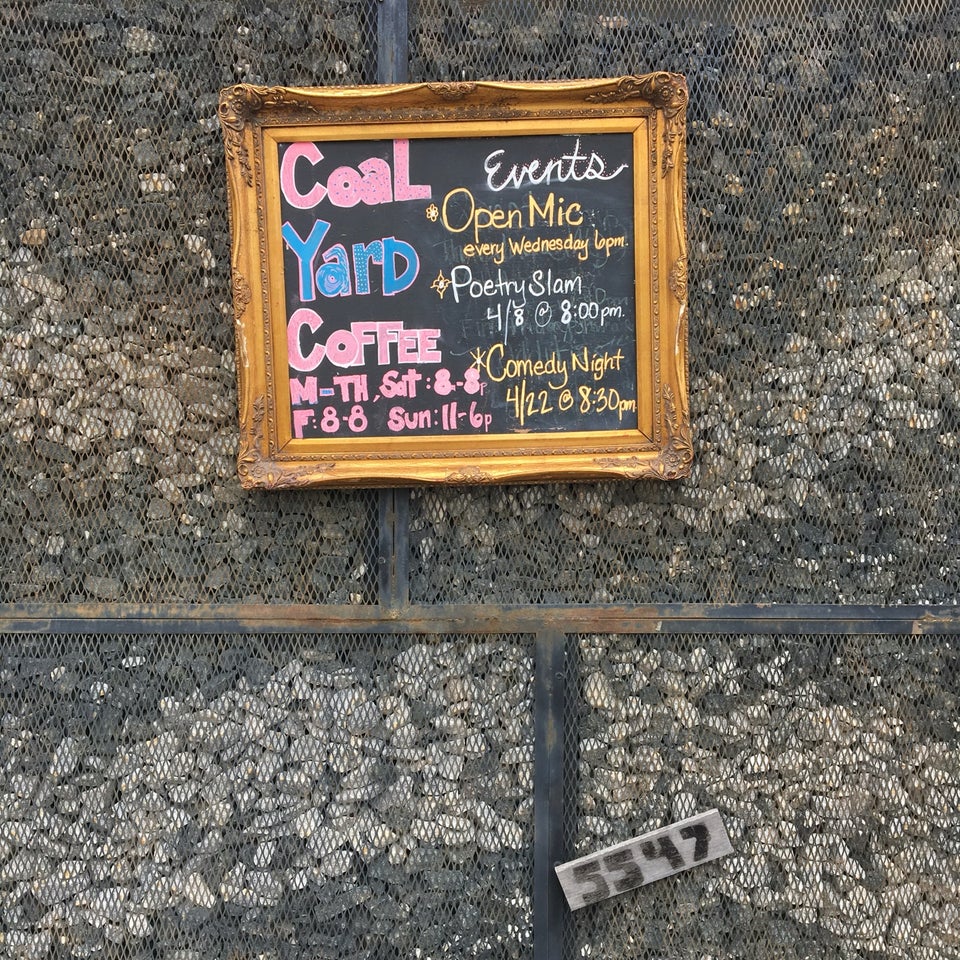 Coal
Yard
Coffee
M-TH, Sat: 8-8p
F: 8-8 Sun: 11-6p
Events
Open Mic
every Wednesday 6pm.
Poetry Slam
4/8 @ 8:00pm.
Comedy Night
4/22 @ 8:30pm
5547